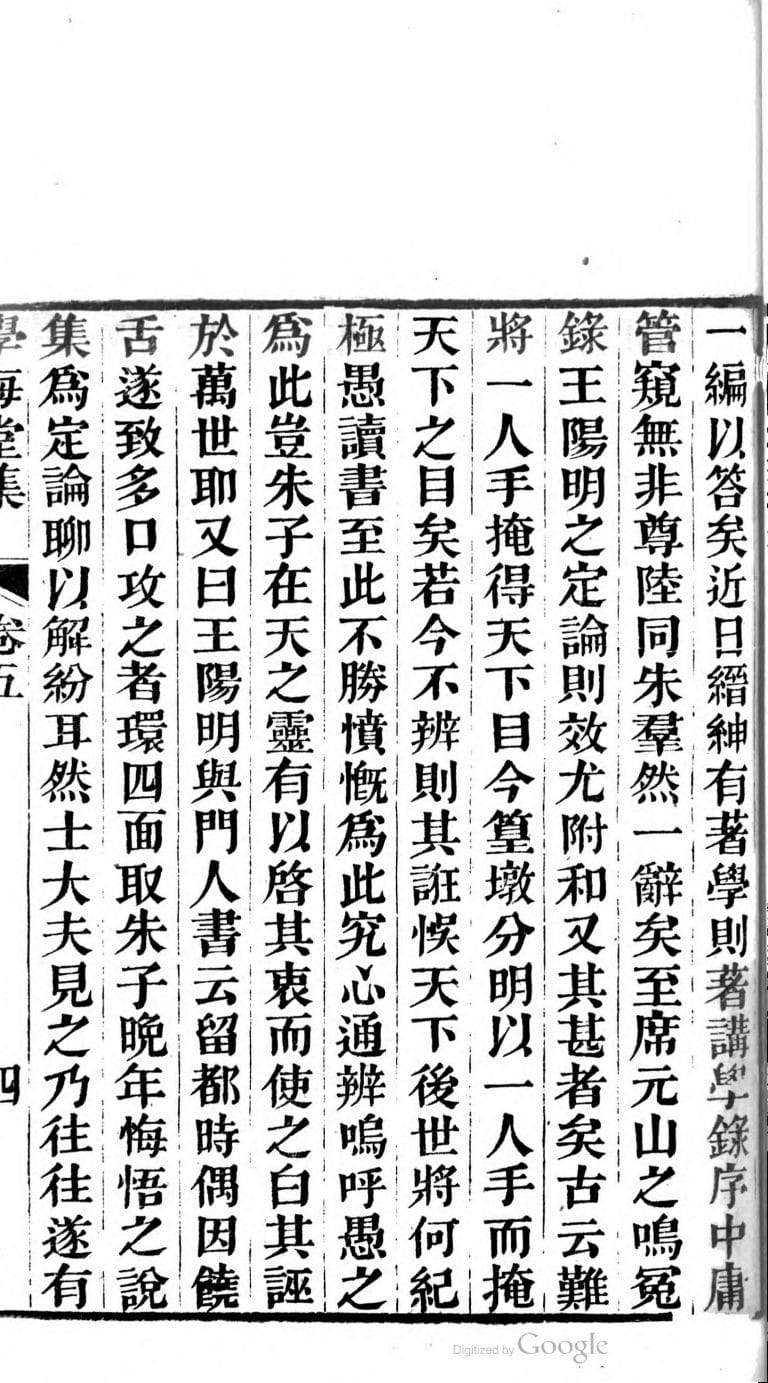 一編以答矣近日縉紳有著學則著講學錄序中庸
管窺無非尊陸同朱羣然一辭矣至席元山之鳴冤
錄王陽明之定論則效尤附和又其甚者矣古云難
將一人手掩得天下目今篁墩分明以一人手而掩
天下之目矣若今不辨則其誑悞天下後世將何紀
極愚讀書至此不勝憤慨爲此究心通辨嗚呼愚之
爲此豈朱子在天之靈有以啓其衷而使之白其誣
於萬世耶又曰王陽明與門人書云留都時偶因饒
舌遂致多口攻之者環四面取朱子晚年悔悟之說
集爲定論聊以解紛耳然士大夫見之乃往往遂有
學海堂集 卷五 四
Digitized by Google